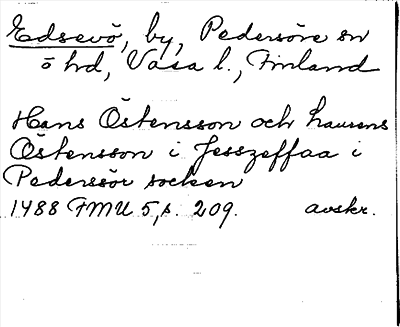 Edsevö, by, Pedersöre sn
ö hd, Vasa l., Finland
Hans Östensson och Laurens
Östensson i Jesszeffaa i
Pederssör socken
1488 FMU 5, s. 209. avskr.